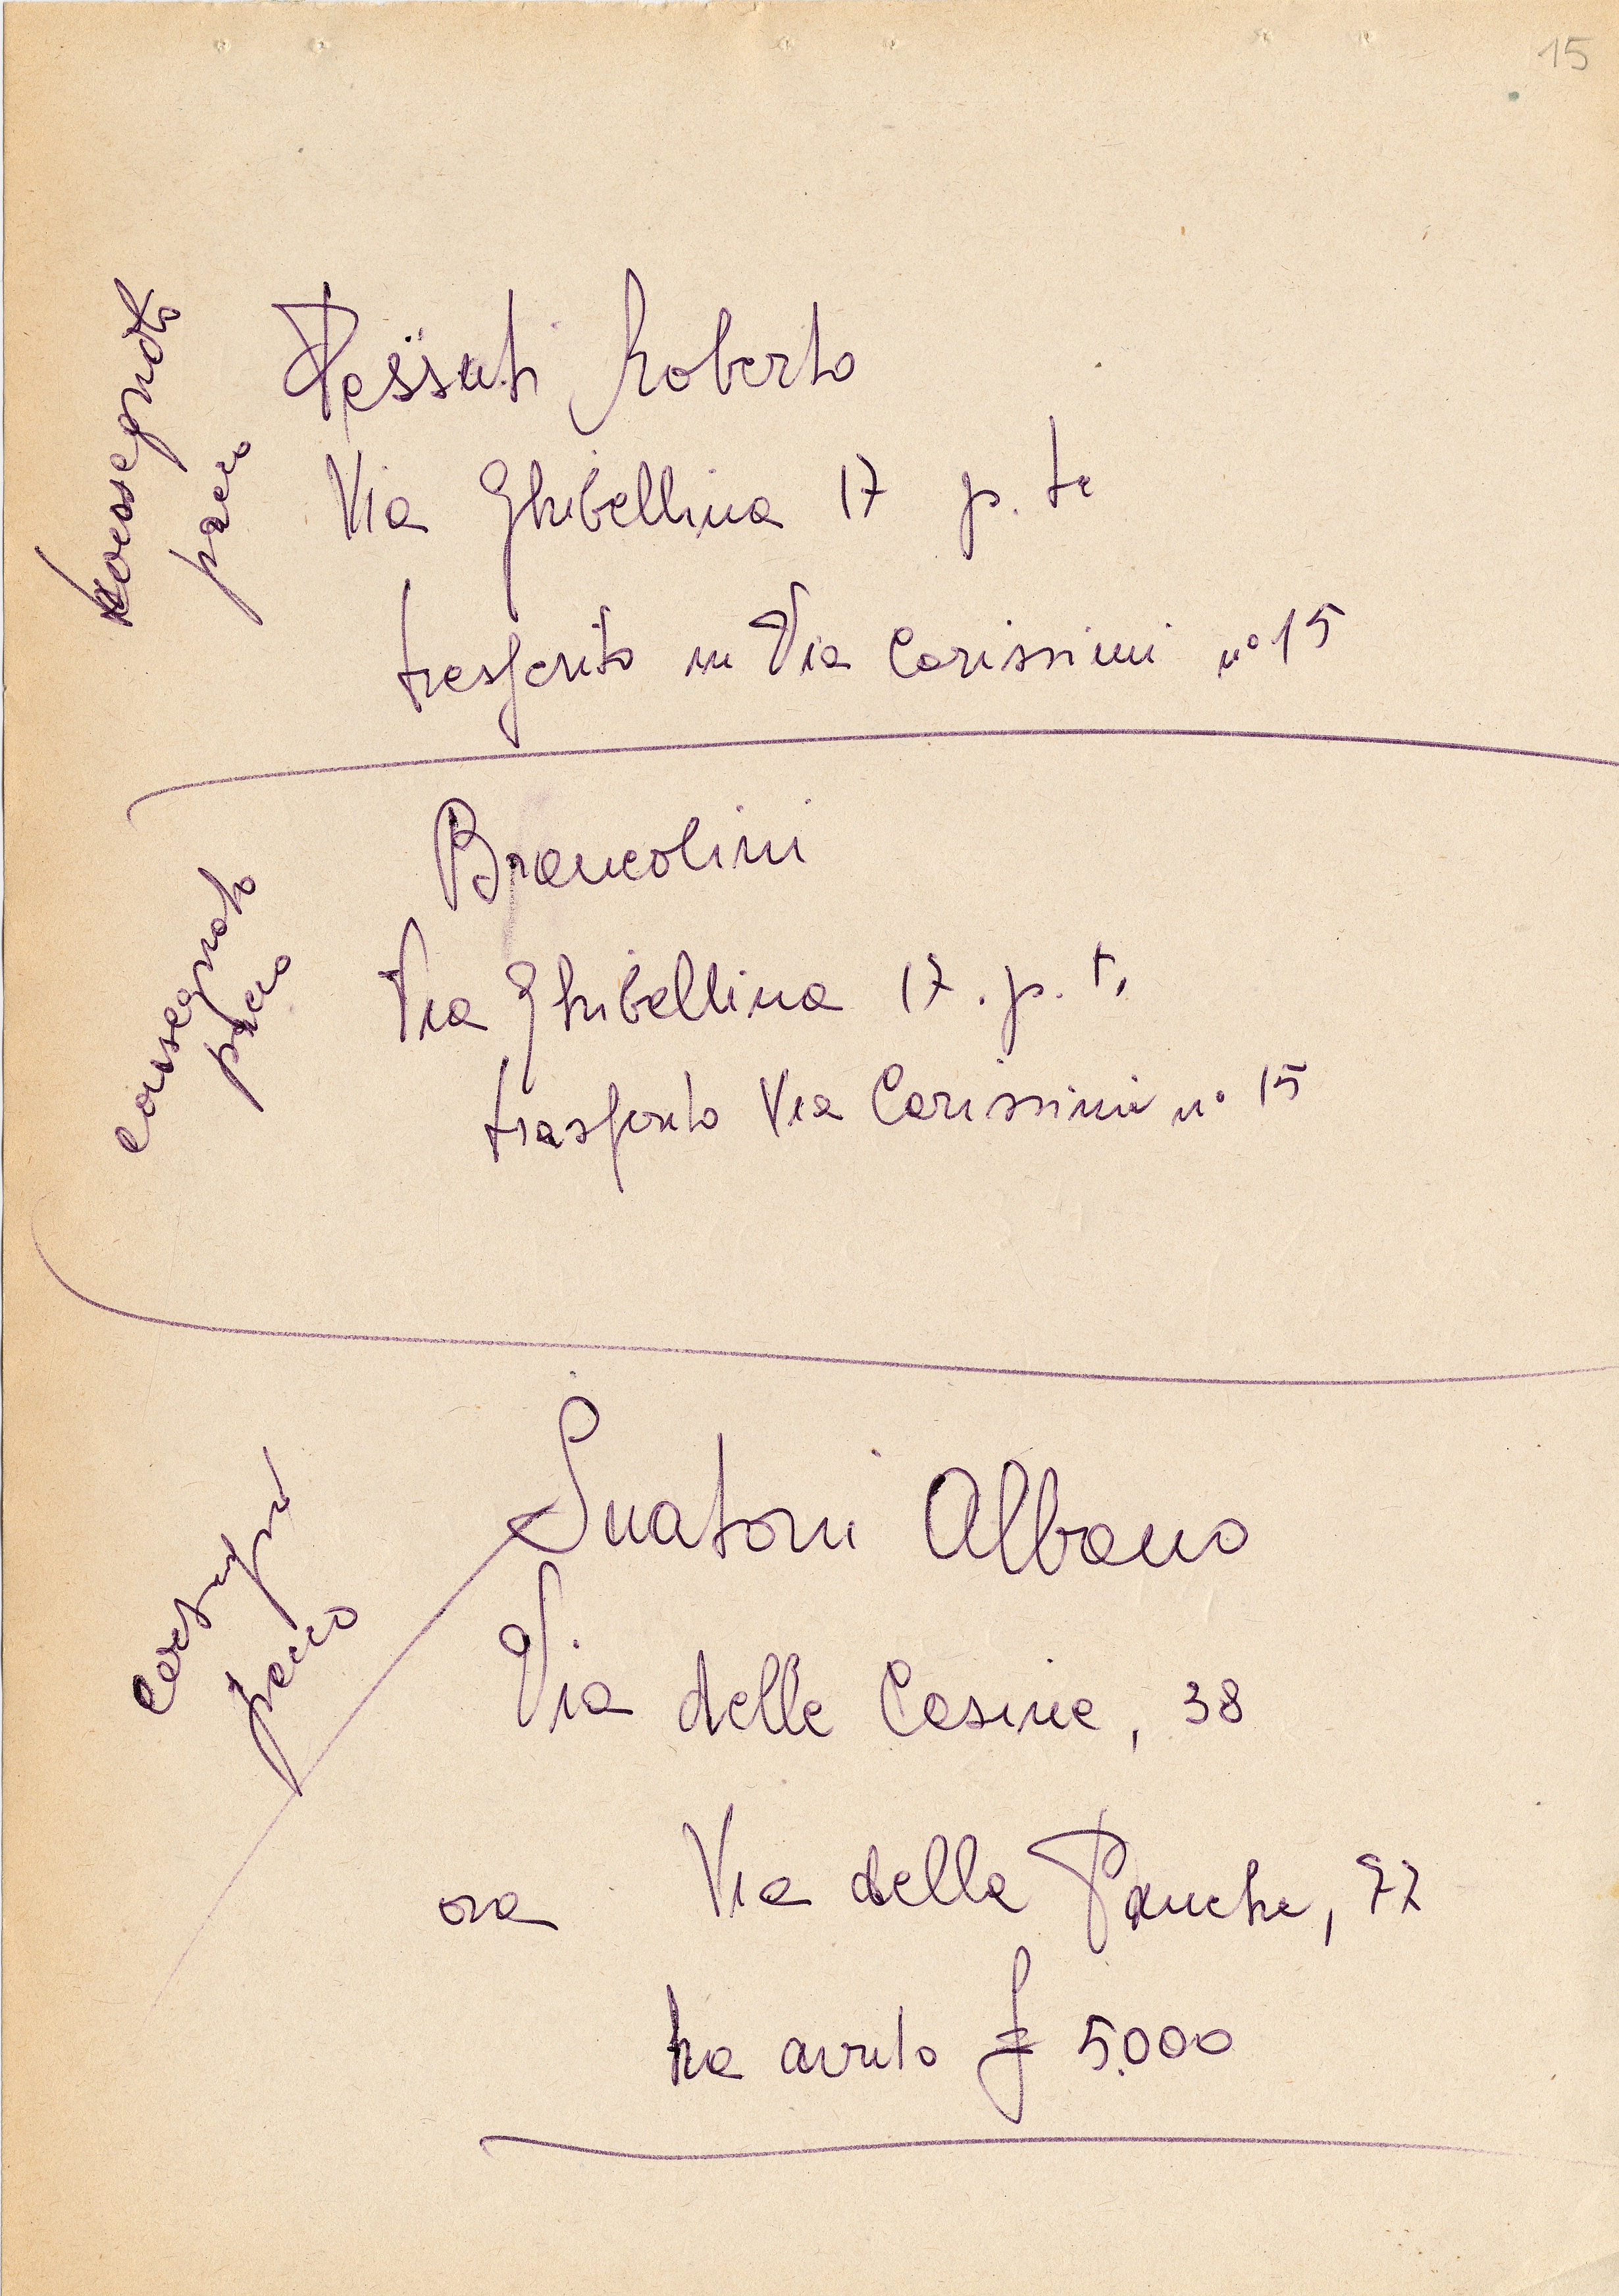 15
consegnato
pacco
Roberto
Via Ghibellina 17 p. te
trasferito in Via Carissimi n° 15
consegnato
pacco
Brancolini
Via Ghibellina 17. p. t.
trasferito Via Carissimi n° 15
pacco
Albano
Via delle Casine, 38
ora Via della Panche, 72
ha avuto £ 5.000